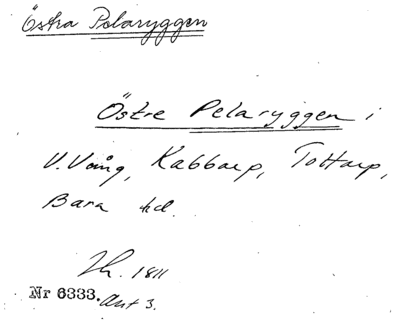 Östra Pelaryggen
Östre Pelaryggen i
V. Vång, Kabbarp, Tottarp,
Bara hd.
1811
Nr 6333. Akt 3.